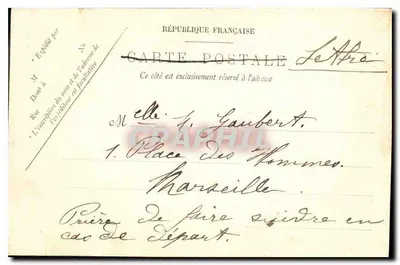 RÉPUBLIQUE FRANÇAISE
CARTE POSTALE Lettre
Ce côté est exclusivement réservé à l'adresse
Expédié par
M
N°
Demt à
Rue
L'inscription du nom et de l'adresse de
l'expéditeur est facultative
Melle Y. Gaubert.
1. Place des Hommes.
Marseille.
Prière de faire suivre en
cas de départ.